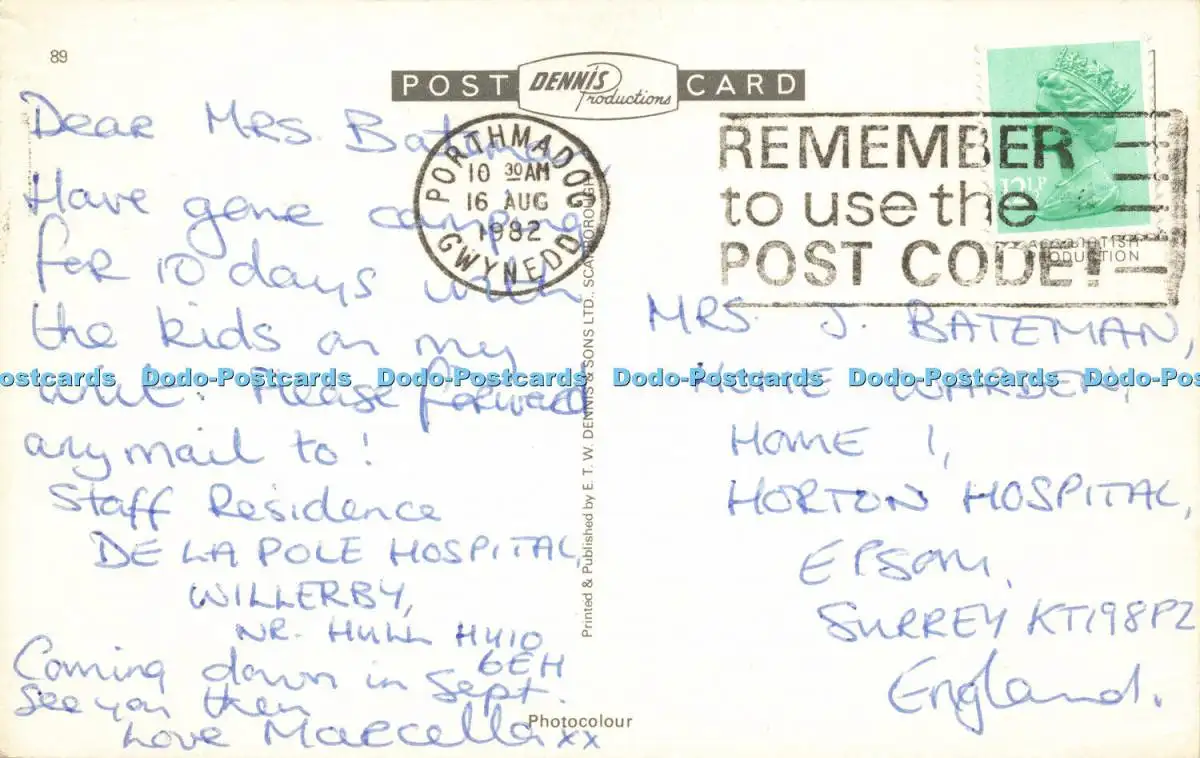 89
POST DENNIS Productions CARD
Dear Mrs. Bateman
Have gone camping
for 10 days with
the kids on my
Please forward
any mail to!
Staff Residence
DE LA POLE HOSPITAL,
WILLERBY,
NR. HULL HU10
6EH
Coming down in Sept.
See you then
Love Marcella xx
PORTHMADOG
10 30AM
16 AUG
1982
GWYNEDD
REMEMBER
to use the
POST CODE!
12½P
PRODUCTION
MRS. J. BATEMAN,
HOME WARDEN,
HOME 1,
HORTON HOSPITAL,
EPSOM,
SURREY KT198PZ
England.
Printed & Published by E. T. W. DENNIS & SONS LTD., SCARBOROUGH
Photocolour
Dodo-Postcards Dodo-Postcards Dodo-Postcards Dodo-Postcards Dodo-Postcards